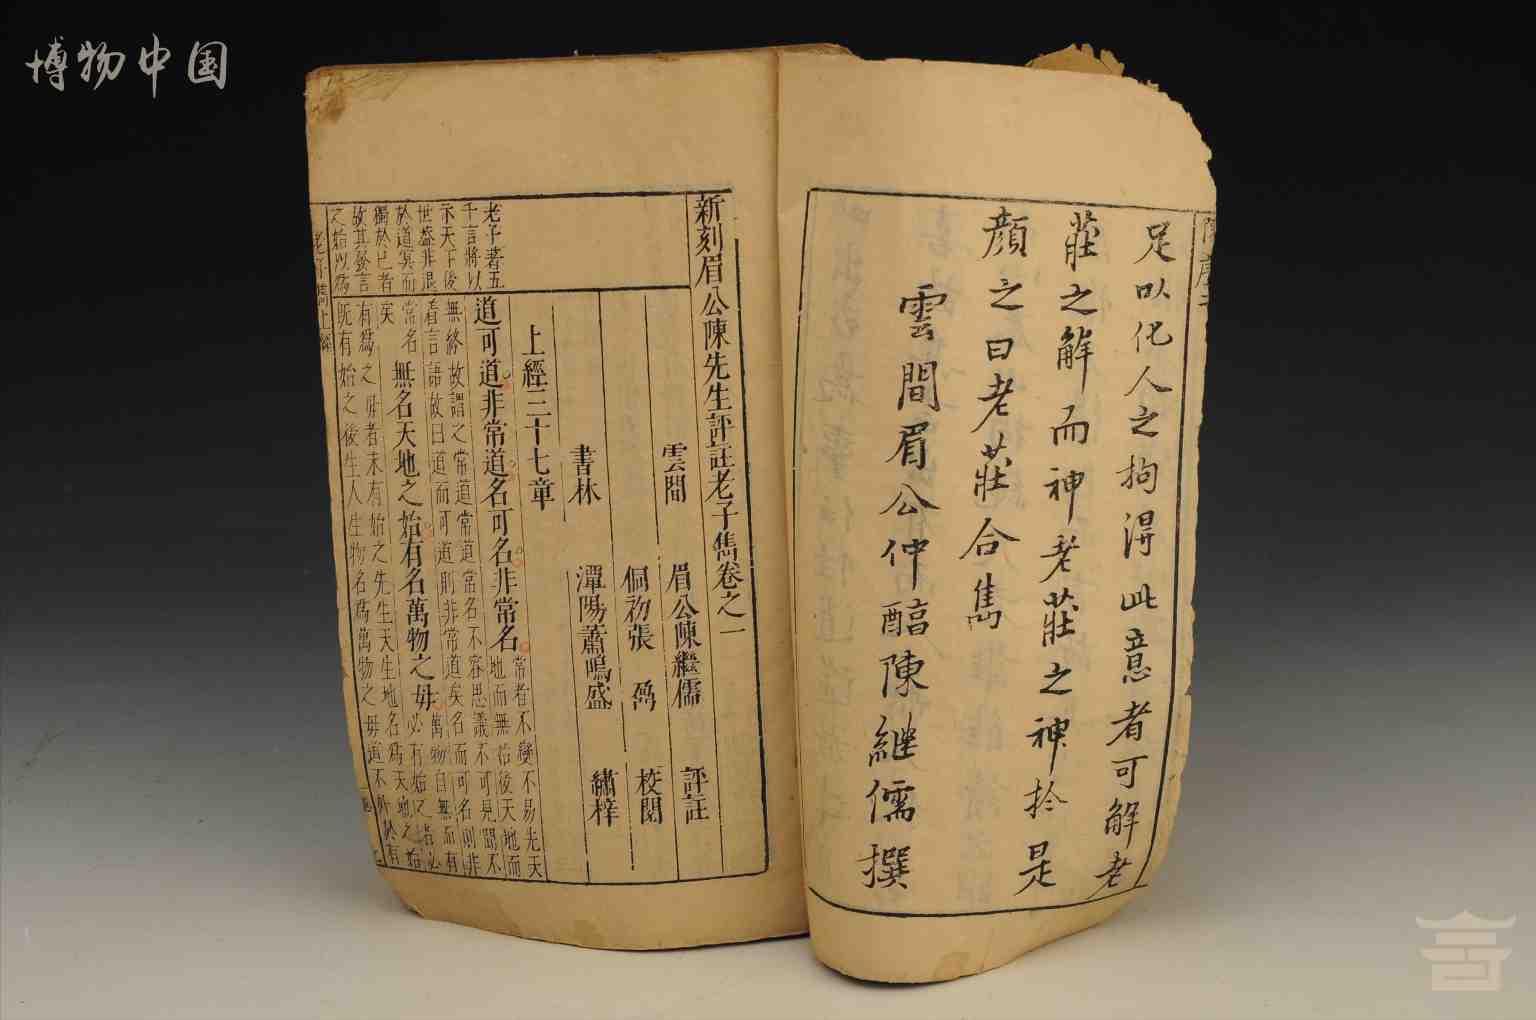 博物中国
足以化人之拘得此意者可解老
莊之解而神老莊之神於是
顏之曰老莊合雋
雲間眉公仲醇陳継儒撰
新刻眉公陳先生評註老子雋卷之一
雲間 眉公陳繼儒 評註
侗初張鼐 校閱
書林 潭陽蕭鳴盛 繡梓
上經三十七章
道可道非常道名可名非常名
常者不變不易先天
地而無始後天地而
無終故謂之常道常道常名不容思議不可見聞不
看言語故曰道而可道則非常道矣名而可名則非
常名
矣
無名天地之始有名萬物之母
萬物自無而有
必有始之者必
有為之母者未有始之先生天生地名為天地之始
既有始之後生人生物名為萬物之母道不
老子著五
千言將以
示天下後
世蓋非退
於道冥而
獨於己者
故其發言
之始以為